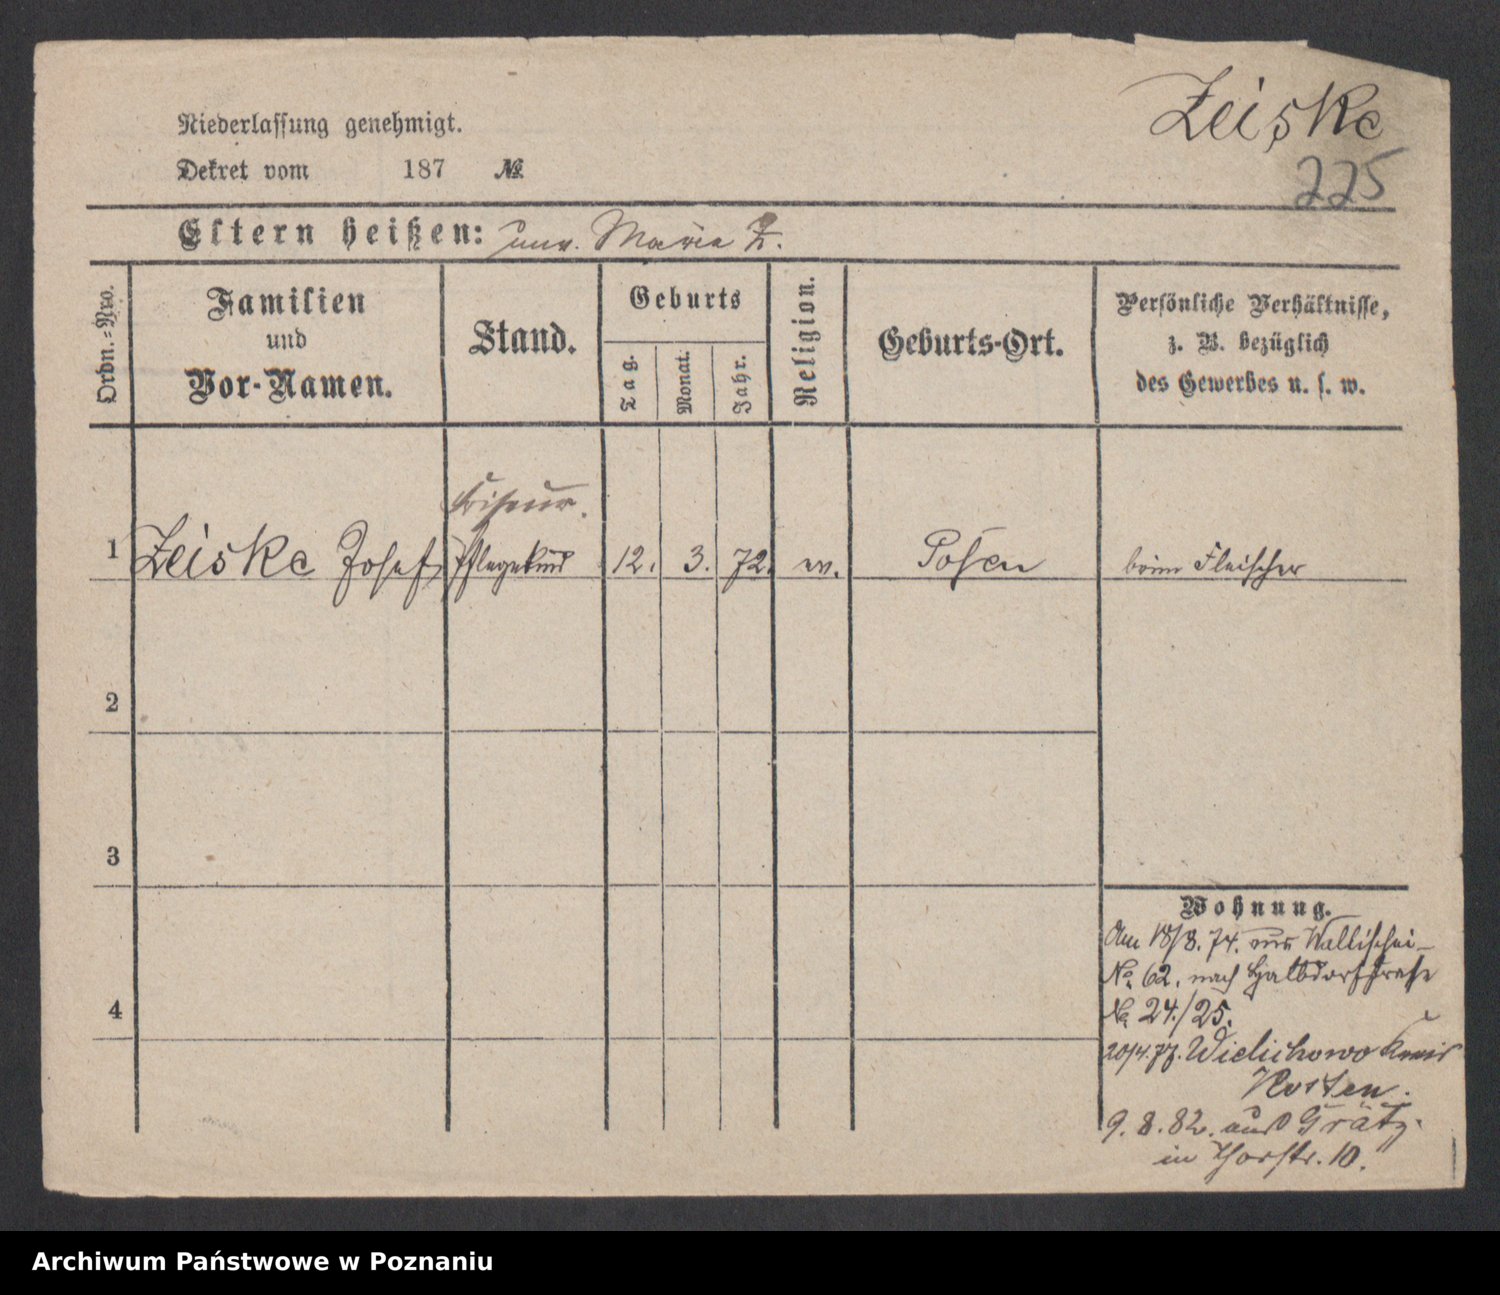 Zeiske
225
Niederlassung genehmigt.
Dekret vom 187 №
Eltern heißen: unv. Marie Z.
Ordn.-Nro.
Familien und Vor-Namen.
Stand.
Geburts
Tag.
Monat.
Jahr.
Religion.
Geburts-Ort.
Persönliche Verhältnisse,
z. B. bezüglich
des Gewerbes u. s. w.
Friseur.
1 Zeiske Josef Pflegekind 12. 3. 72. ev. Posen beim Fleischer
2
3
4
Wohnung.
Am 18/8. 74. aus Wallischei
No. 62. nach Halbdorfstraße
No. 24./25.
20/4. 77. Wielichowo Kreis
Kosten.
9. 8. 82. aus Grätz.
in Thorstr. 10.
Archiwum Państwowe w Poznaniu